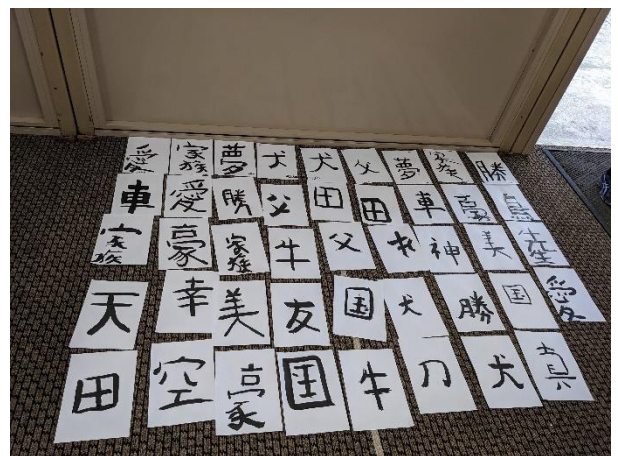 愛 家族 夢 犬 犬 父 夢 家族 勝
車 愛 勝 父 田 田 車 豪
家族 豪 家族 牛 父 神 美 先生
天 幸 美 友 国 犬 勝 国 愛
田 空 豪 国 牛 刀 犬 真